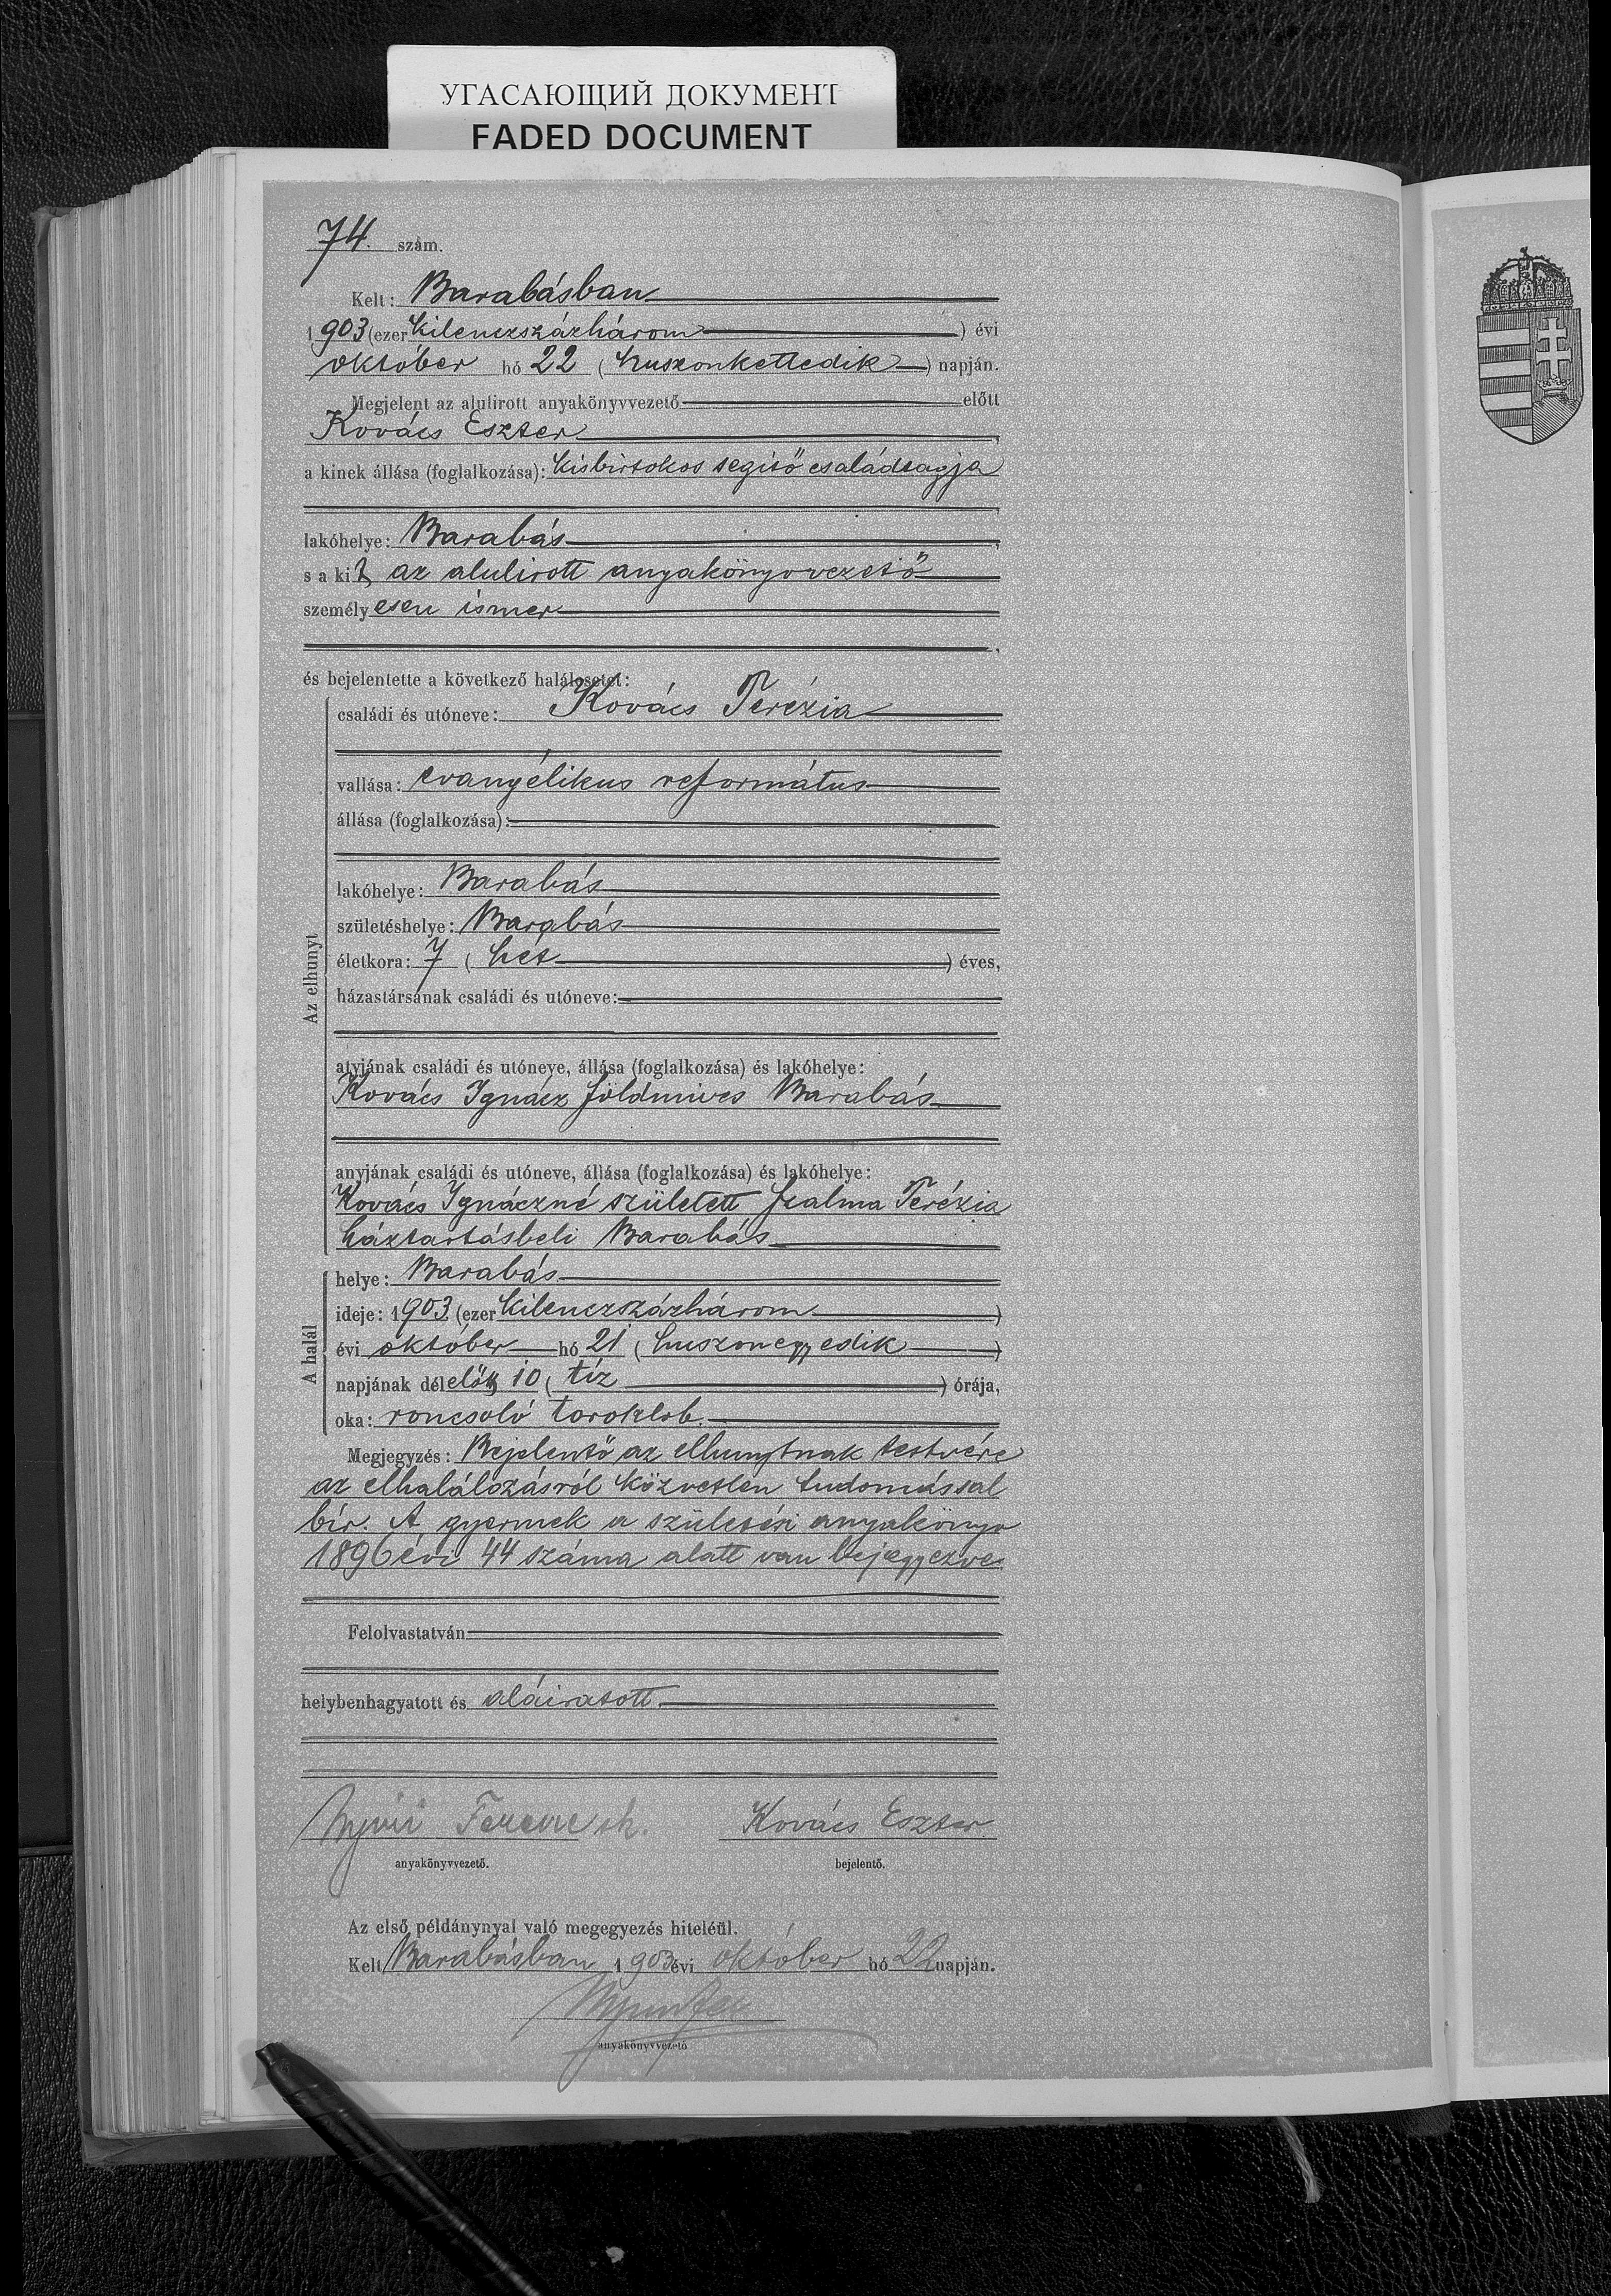 УГАСАЮЩИЙ ДОКУМЕНТ
FADED DOCUMENT
74. szám.
Kelt: Barabásban
1903 (ezer kilenczszázhárom) évi
október hó 22 (huszonkettedik) napján.
Megjelent az alulirott anyakönyvvezető előtt
Kovács Eszter,
a kinek állása (foglalkozása): kisbirtokos segitő családtagja
lakóhelye: Barabás,
s a kit az alulirott anyakönyvvezető
személyesen ismer,
és bejelentette a következő halálesetet:
Az elhunyt
családi és utóneve: Kovács Terézia
vallása: evangélikus református
állása (foglalkozása):
lakóhelye: Barabás
születéshelye: Barabás
életkora: 7 (hét) éves,
házastársának családi és utóneve:
atyjának családi és utóneve, állása (foglalkozása) és lakóhelye:
Kovács Ignácz földmives Barabás
anyjának családi és utóneve, állása (foglalkozása) és lakóhelye:
Kovács Ignáczné született Szalma Terézia
háztartásbeli Barabás
A halál
helye: Barabás
ideje: 1903 (ezer kilenczszázhárom)
évi október hó 21 (huszonegyedik)
napjának délelőtt 10 (tíz) órája,
oka: roncsoló toroklob.
Megjegyzés: Bejelentő az elhunytnak testvére
az elhalálozásról közvetlen tudomással
bír. A gyermek a születési anyakönyv
1896 évi 44 száma alatt van bejegyezve
Felolvastatván
helybenhagyatott és aláiratott.
Ferenc sk. Kovács Eszter
anyakönyvvezető. bejelentő.
Az első példánynyal való megegyezés hiteléül.
Kelt Barabásban 1903 évi október hó 22 napján.
anyakönyvvezető